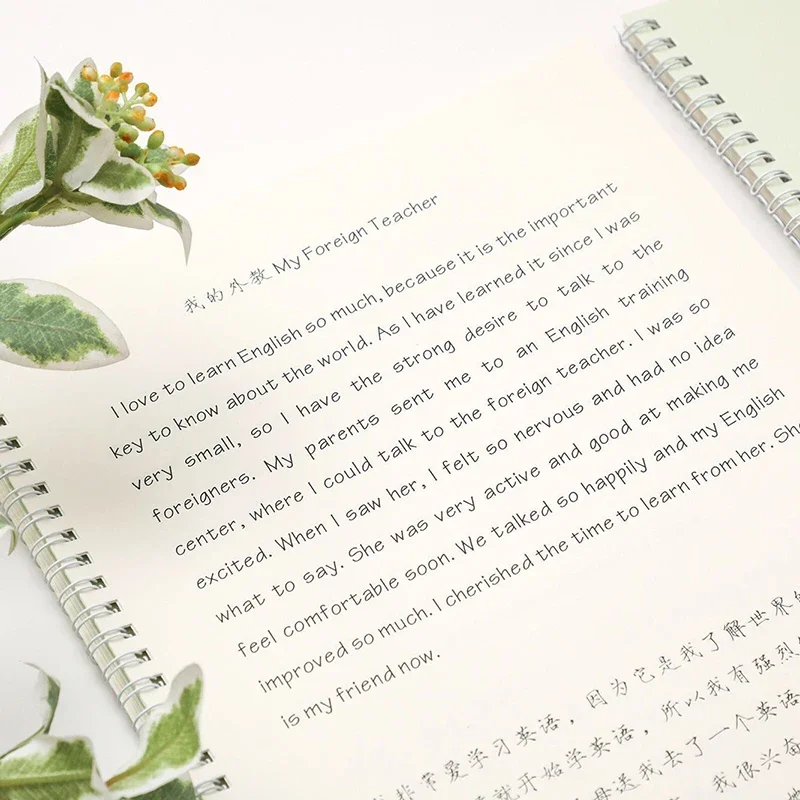 我的外教 My Foreign Teacher
I love to learn English so much, because it is the important
key to know about the world. As I have learned it since I was
very small, so I have the strong desire to talk to the
foreigners. My parents sent me to an English training
center, where I could talk to the foreign teacher. I was so
excited. When I saw her, I felt so nervous and had no idea
what to say. She was very active and good at making me
feel comfortable soon. We talked so happily and my English
improved so much. I cherished the time to learn from her. She
is my friend now.
非常爱学习英语，因为它是我了解世界的
就开始学英语，所以我有强烈
送我去了一个英语
我很兴奋